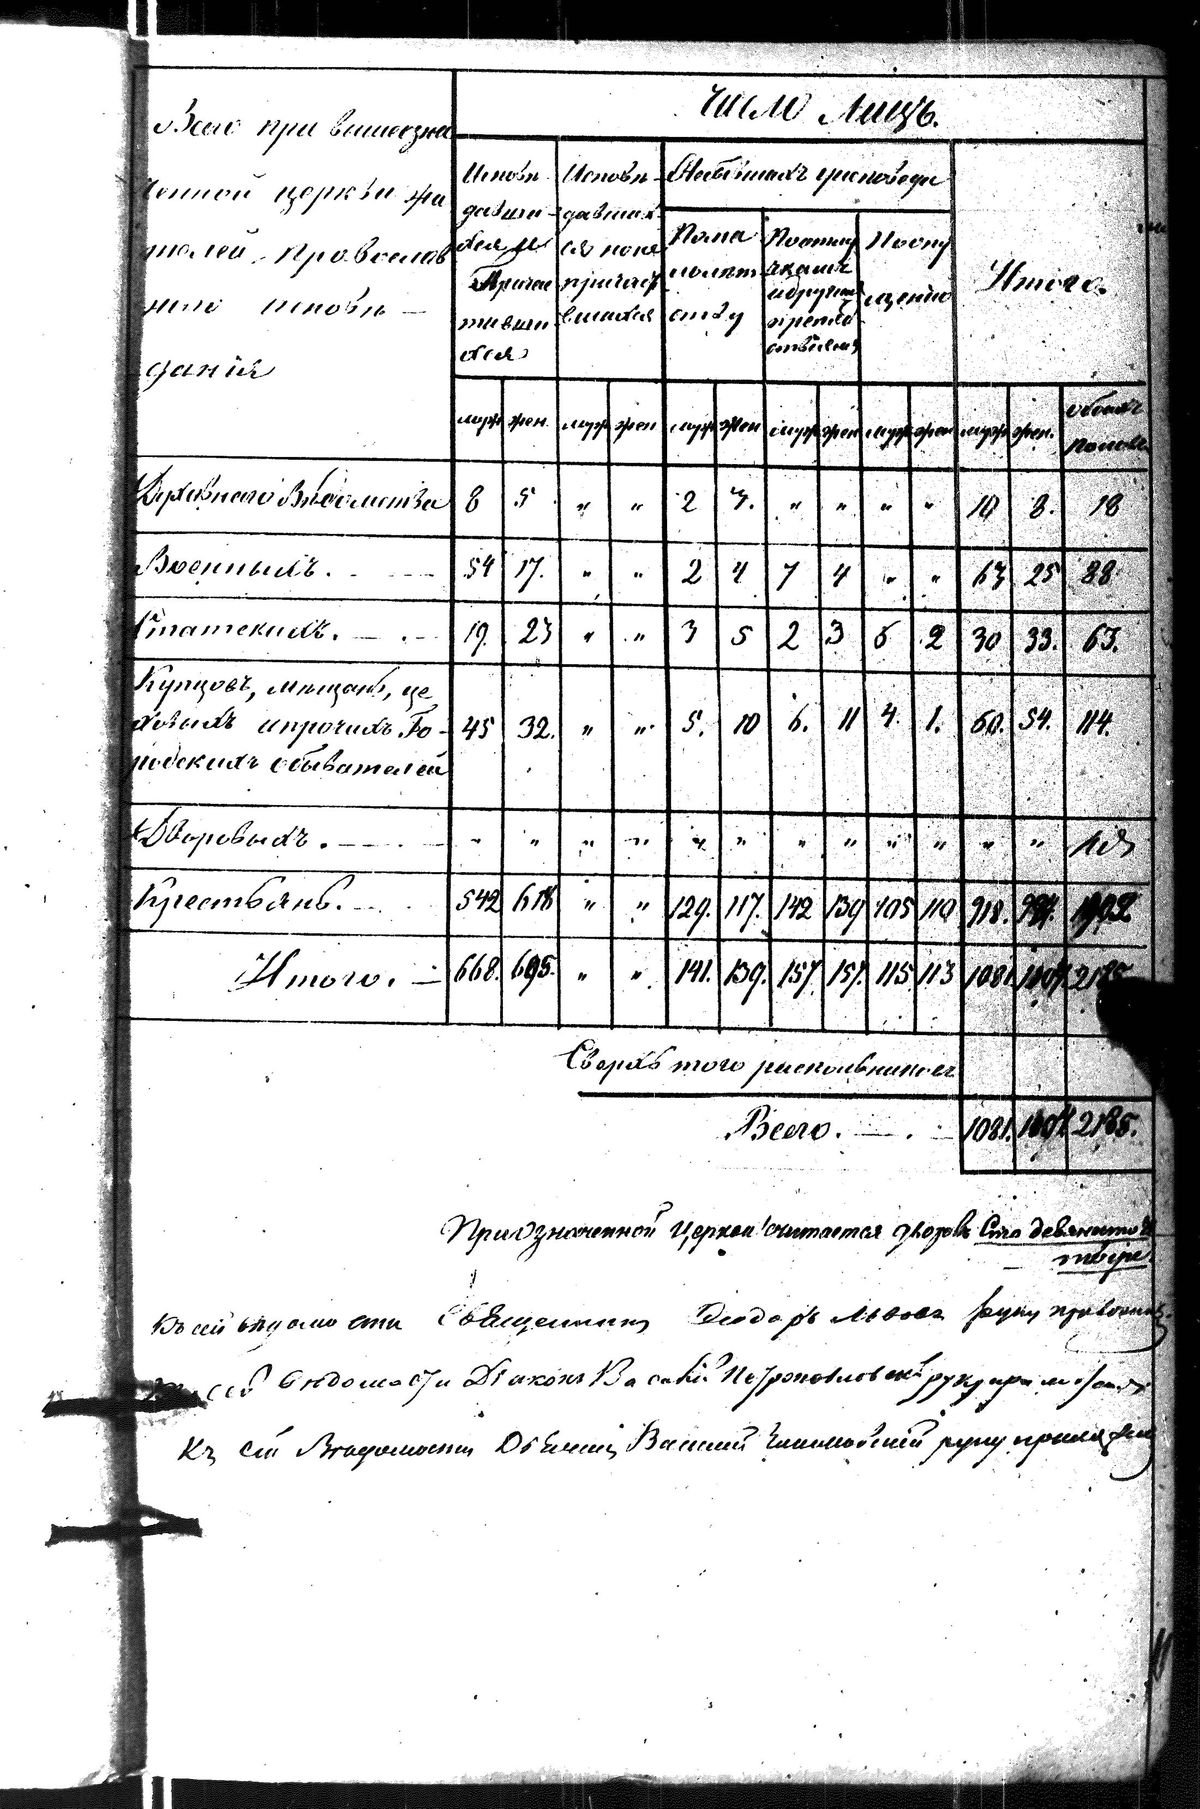 Число Лицъ.
Всего при вышеозна
ченной церкви жи
телей, Православ
наго исповѣ-
данія
Исповѣ-
давши-
хся и
Причас
тивши
хся
Исповѣ-
давших
ся но не
причаст
вшихся
Небывшихъ уисповѣди
По ма
лолѣт
ству
По отлуч
камъ
и другим
препят
ствіямъ
По опу
щенію
Итого.
муж жен. муж жен муж жен муж жен муж жен муж жен. обоихъ
половъ
Духовнаго Вѣдомства 8 5 „ „ 2 3. „ „ „ „ 10 8. 18
Военныхъ. 54 17. „ „ 2 4 7 4 „ „ 63 25 88
Статскихъ. 19. 23 „ „ 3 5 2 3 6 2 30 33. 63.
Купцовъ, мѣщанъ, це
ховыхъ и прочихъ Го-
родскихъ обывателей 45 32. „ „ 5. 10 6. 11 4. 1. 60. 54. 114.
Дворовыхъ. „ „ „ „ „ „ „ „ „ „ „ „
Крестьянъ. 542 618 „ „ 129. 117. 142 139 105 110 918. 984. 1902.
Итого. 668. 695. „ „ 141. 139. 157 157. 115 113 1081. 1104. 2185
Сверхъ того раскольниковъ
Всего. 1081. 1104 2185.
При означенной Церкви считается дворовъ Сто девяносто че
тыре.
Къ сей вѣдомости Священникъ Ѳеодоръ Львовъ руку приложилъ
Къ сей вѣдомости Діаконъ Василій Петропавловскій руку приложилъ
Къ сей Вѣдомости Дьячекъ Василий руку приложилъ